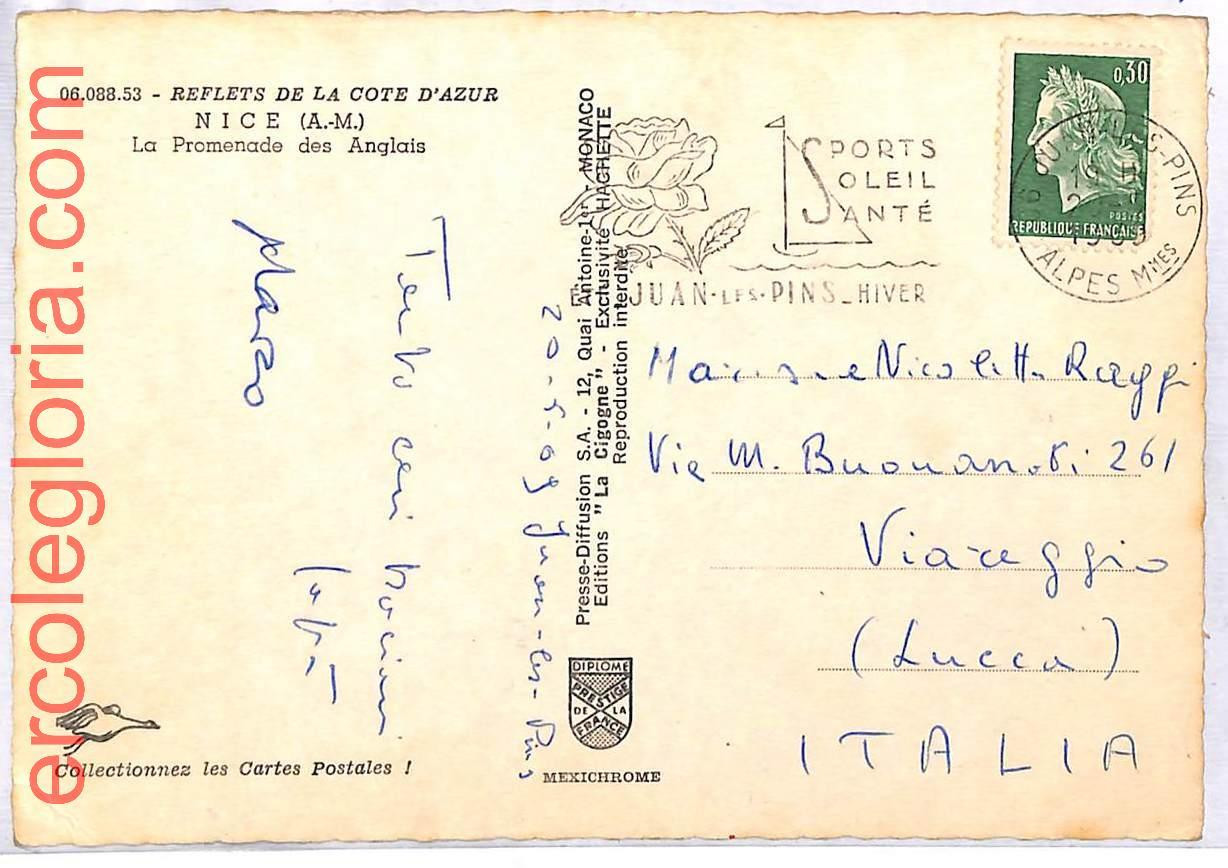 06.088.53 - REFLETS DE LA COTE D'AZUR
NICE (A.-M.)
La Promenade des Anglais
Tanti cari bacioni
Marzo
20-5-69 Juan-les-Pins
Presse-Diffusion S.A. - 12, Quai Antoine-1er - MONACO
Editions "La Cigogne" - Exclusivité HACHETTE
Reproduction interdite
SPORTS
SOLEIL
SANTÉ
JUAN-LES-PINS_HIVER
0,30
POSTES
REPUBLIQUE FRANÇAISE
ALPES MMES
Nicoletta Raggi
Via M. Buonarroti 261
Viareggio
(Lucca)
ITALIA
DIPLOME
PRESTIGE
DE LA
FRANCE
MEXICHROME
Collectionnez les Cartes Postales !
ercolegloria.com